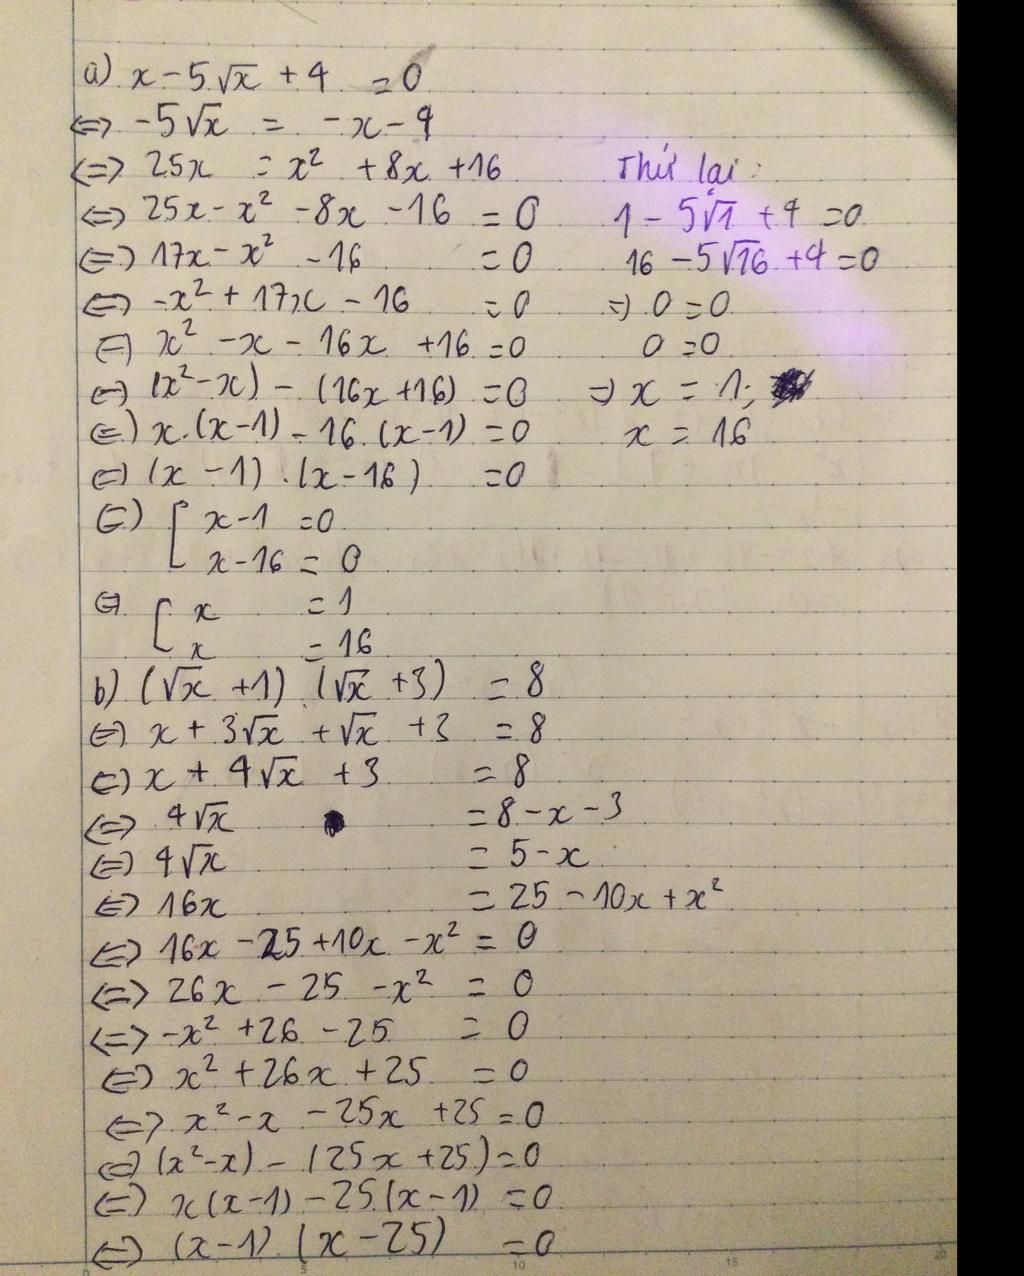 a) x - 5√x + 4 = 0
<=> -5√x = -x - 4
<=> 25x = x² + 8x + 16
<=> 25x - x² - 8x - 16 = 0
<=> 17x - x² - 16 = 0
<=> -x² + 17x - 16 = 0
<=> x² - x - 16x + 16 = 0
<=> (x² - x) - (16x + 16) = 0
<=> x.(x - 1) - 16.(x - 1) = 0
<=> (x - 1).(x - 16) = 0
<=> [ x - 1 = 0
x - 16 = 0
<=> [ x = 1
x = 16
Thử lại:
1 - 5√1 + 4 = 0
16 - 5√16 + 4 = 0
=> 0 = 0
0 = 0
=> x = 1;
x = 16
b) (√x + 1).(√x + 3) = 8
<=> x + 3√x + √x + 3 = 8
<=> x + 4√x + 3 = 8
<=> 4√x = 8 - x - 3
<=> 4√x = 5 - x
<=> 16x = 25 - 10x + x²
<=> 16x - 25 + 10x - x² = 0
<=> 26x - 25 - x² = 0
<=> -x² + 26 - 25 = 0
<=> x² + 26x + 25 = 0
<=> x² - x - 25x + 25 = 0
<=> (x² - x) - (25x + 25) = 0
<=> x(x - 1) - 25.(x - 1) = 0
<=> (x - 1).(x - 25) = 0
0 5 10 15 20